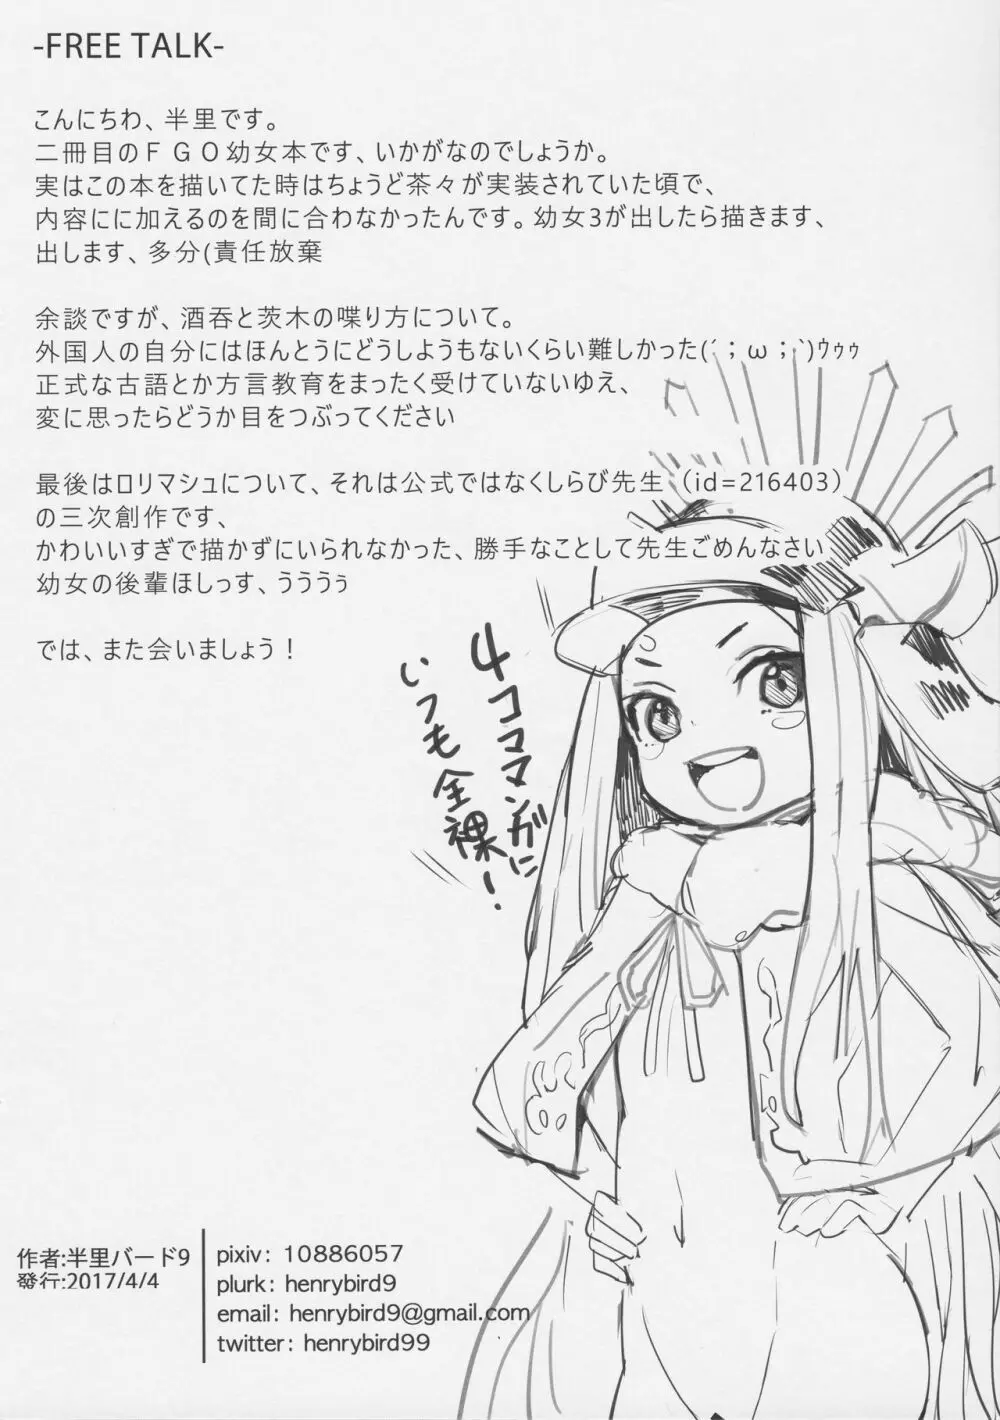 -FREE TALK-
こんにちわ、半里です。
二冊目のＦＧＯ幼女本です、いかがなのでしょうか。
実はこの本を描いてた時はちょうど茶々が実装されていた頃で、
内容にに加えるのを間に合わなかったんです。幼女3が出したら描きます、
出します、多分(責任放棄
余談ですが、酒呑と茨木の喋り方について。
外国人の自分にはほんとうにどうしようもないくらい難しかった(´；ω；`)ｳｩｩ
正式な古語とか方言教育をまったく受けていないゆえ、
変に思ったらどうか目をつぶってください
最後はロリマシュについて、それは公式ではなくしらび先生（id=216403）
の三次創作です、
かわいいすぎで描かずにいられなかった、勝手なことして先生ごめんなさい
幼女の後輩ほしっす、うううぅ
では、また会いましょう！
4コママンガに
いつも全裸！
作者:半里バード9
發行:2017/4/4
pixiv: 10886057
plurk: henrybird9
email: henrybird9@gmail.com
twitter: henrybird99